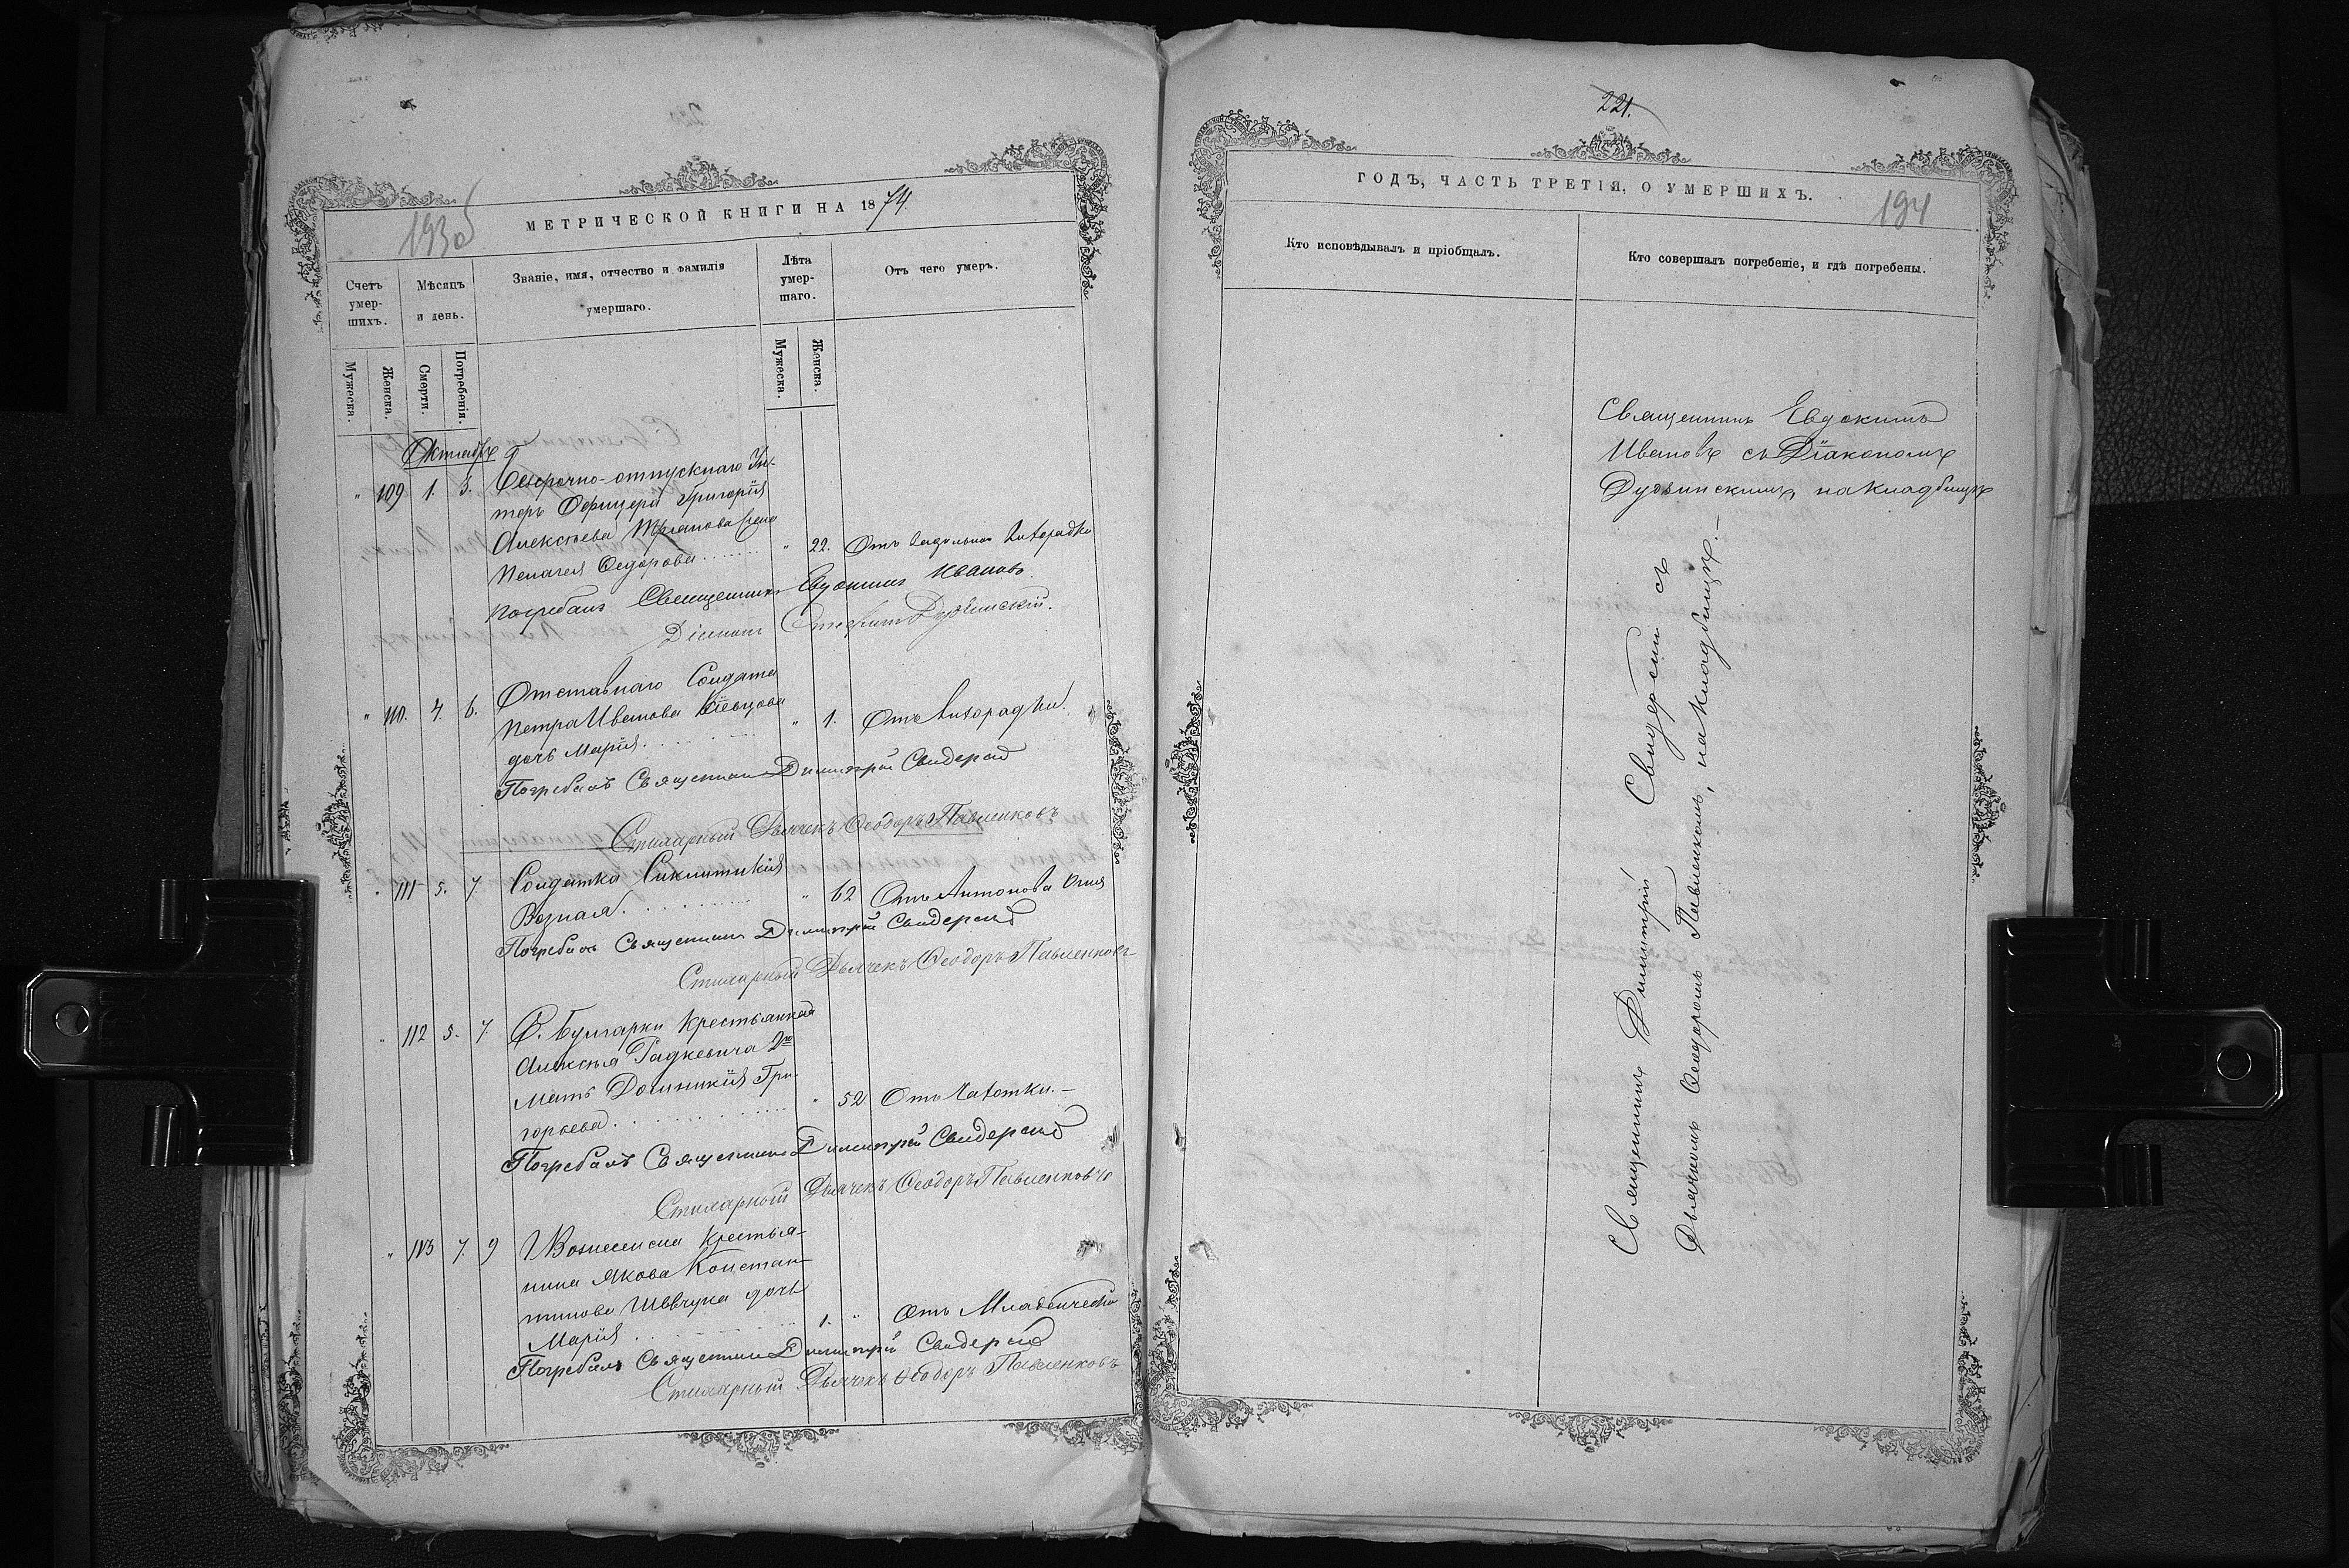 193об
МЕТРИЧЕСКОЙ КНИГИ НА 1874.
Счетъ умер-шихъ.
Мѣсяцъ и день.
Званіе, имя, отчество и фамилія
умершаго.
Лѣта умер-шаго.
Отъ чего умеръ.
Мужеска.
Женска.
Смерти.
Погребенія.
Мужеска.
Женска.
Октябрь
" 109 1. 3. Безсрочно-отпускнаго Ун-
теръ Офицера Григорія
Алексѣева жена
Пелагея Ѳедорова " 22. Отъ Лихорадки
Погребалъ Священникъ Евдокимъ Ивановъ
Діаконъ
" 110. 4. 6. Отставнаго Солдата
Петра Иванова
дочь Марія. " 1. Отъ Лихорадки.
Погребалъ Священникъ Димитрій Свидерскій
Стихарный Дьячекъ Ѳеодоръ Павленковъ
" 111 5. 7. Солдатка Синклитикія
Возная. " 62 Отъ Антонова Огня
Погребалъ Священникъ Димитрій Свидерскій
Стихарный Дьячекъ Ѳеодоръ Павленковъ
" 112 5. 7. С. Булгарки Крестьянина
Алексѣя Радкевича 2го
Мать Домникія Гри-
горьева. " 52. Отъ Чахотки.—
Погребалъ Священникъ Димитрій Свидерскій
Стихарный Дьячекъ Ѳеодоръ Павленковъ
" 113 7. 9 Вознесенска Крестья-
нина Якова Констан-
тинова Шевчука дочь
Марія 1. " Отъ Младенческой
Погребалъ Священникъ Димитрій Свидерскій
Стихарный Дьячекъ Ѳеодоръ Павленковъ
221.
ГОДЪ, ЧАСТЬ ТРЕТІЯ, О УМЕРШИХЪ.
194
Кто исповѣдывалъ и пріобщалъ.
Кто совершалъ погребеніе, и гдѣ погребены.
Священникъ Евдокимъ
Ивановъ съ Діакономъ
на кладбищѣ
Священникъ Димитрій Свидерскій съ
Дьячкомъ Ѳеодоромъ Павленкомъ, на кладбищѣ.—